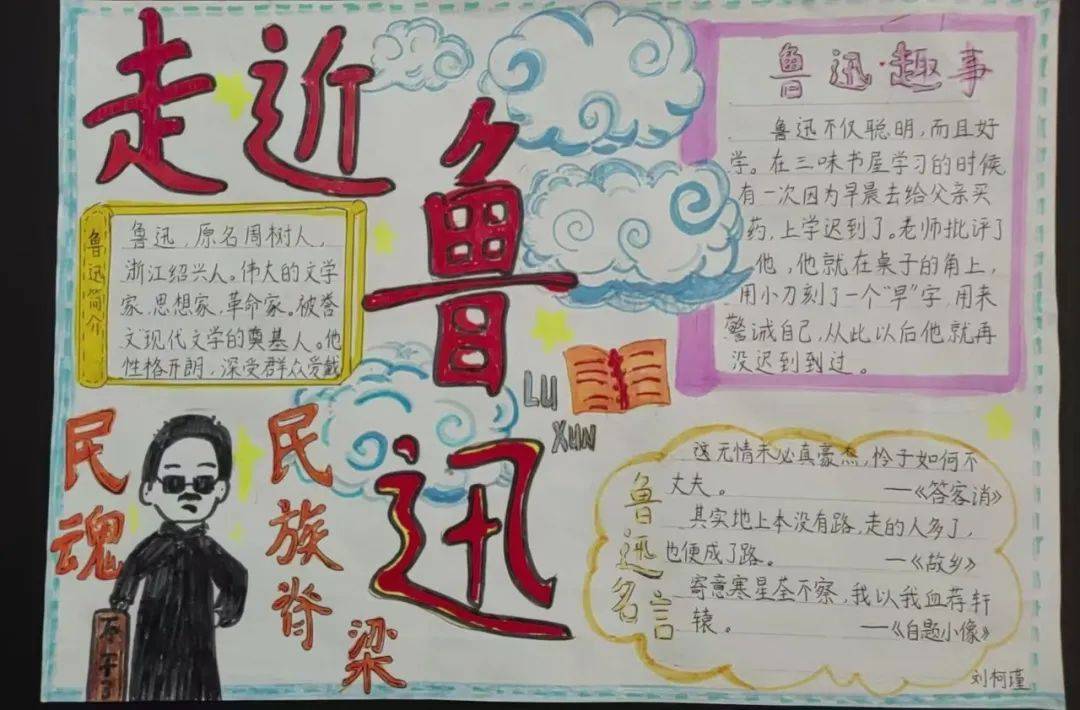 走近
鲁迅
LU
XUN
鲁迅简介
鲁迅,原名周树人,
浙江绍兴人。伟大的文学
家,思想家,革命家。被誉
文现代文学的奠基人。他
性格开朗,深受群众受戴
鲁迅·趣事
鲁迅不仅聪明,而且好
学。在三味书屋学习的时候
有一次因为早晨去给父亲买
药,上学迟到了。老师批评了
他,他就在桌子的角上,
用小刀刻了一个“早”字,用来
警诫自己,从此以后他就再
没迟到到过。
民魂
民族脊梁
鲁迅名言
这无情未必真豪杰,怜子如何不
丈夫。 —《答客诮》
其实地上本没有路,走的人多了,
也便成了路。 —《故乡》
寄意寒星荃不察,我以我血荐轩
辕。 —《自题小像》
刘柯瑾